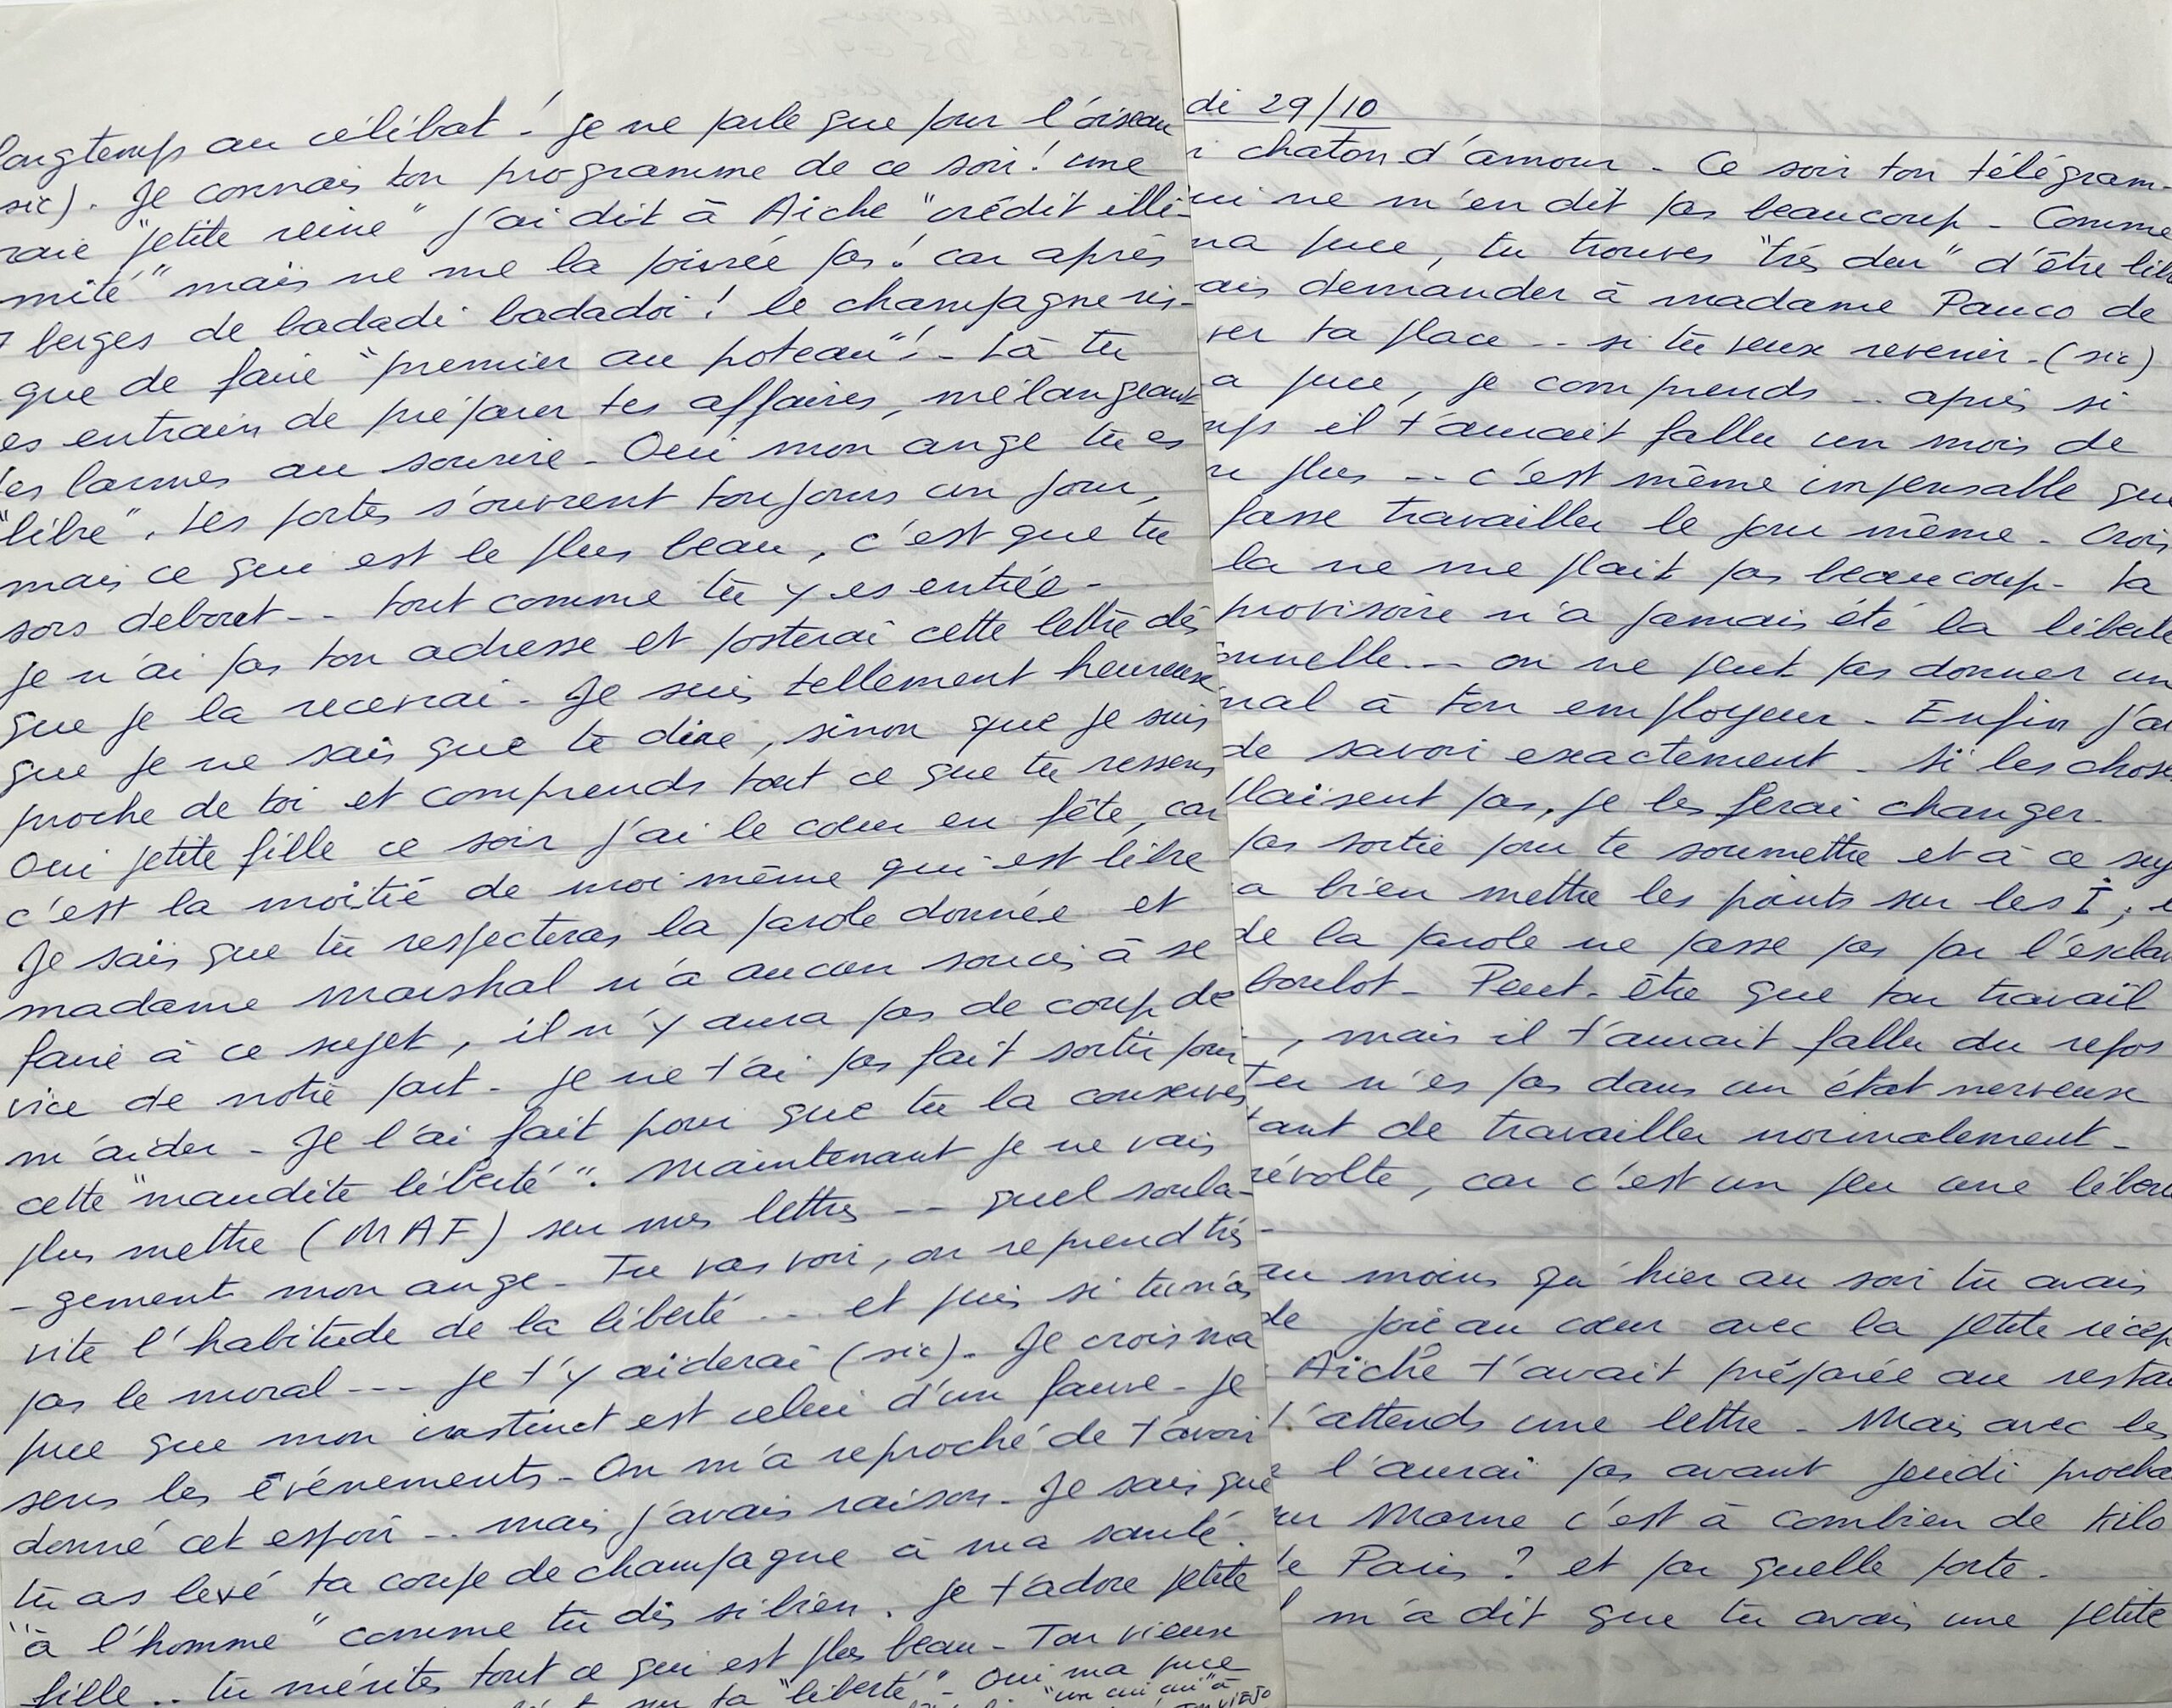 longtemps au célibat ! je ne parle que pour l'oiseau
sic). Je connais ton programme de ce soir ! une
raie "petite reine" j'ai dit à Aiche "crédit illi-
mité" mais ne me la poivrée pas ! car après
berges de badadi badadoi ! le champagne ris-
que de faire "premier au poteau" ! - Là tu
es entrain de préparer tes affaires, mélangeant
les larmes au sourire - Oui mon ange tu es
"libre". Les portes s'ouvrent toujours un jour,
mais ce qui est le plus beau, c'est que tu
sors debout -- tout comme tu y es entrée -
je n'ai pas ton adresse et posterai cette lettre dès
que je la recevrai - Je suis tellement heureux
que je ne sais que te dire, sinon que je suis
proche de toi et comprends tout ce que tu ressens
Oui petite fille ce soir j'ai le cœur en fête, car
c'est la moitié de moi même qui est libre
Je sais que tu respecteras la parole donnée et
madame Marshal n'a aucun soucis à se
faire à ce sujet, il n'y aura pas de coup de
vice de notre part - je ne t'ai pas fait sortir pour
m'aider - Je l'ai fait pour que tu la conserves
cette "maudite liberté". Maintenant je ne vais
plus mettre (MAF) sur mes lettres -- quel soula-
- gement mon ange - Tu vas voir, on reprend très
vite l'habitude de la liberté ... et puis si tu n'as
pas le moral --- je t'y aiderai (sic) - Je crois ma
puce que mon instinct est celui d'un fauve - je
sens les événements - On m'a reproché de t'avoir
donné cet espoir -- mais j'avais raison - Je sais que
tu as levé ta coupe de champagne à ma santé.
"à l'homme" comme tu dis si bien. je t'adore petite
fille .. tu mérites tout ce qui est plus beau - Ton vieux
sur ta "liberté" - Oui ma puce
"un cui cui" à
di 29/10
chaton d'amour - Ce soir ton télégram-
ui ne m'en dit pas beaucoup - Comme
ma puce, tu trouves "très dur" d'être lib
ais demander à madame Pauco de
ver ta place -- si tu veux revenir - (sic)
a puce, je comprends -- après si
mps il t'aurait fallu un mois de
u plus -- c'est même impensable que
fasse travailler le jour même - Crois
la ne me plait pas beaucoup - La
provisoire n'a jamais été la liberté
onnelle -- on ne peut pas donner un
nal à ton employeur - Enfin j'ai
de savoir exactement - Si les chose
plaisent pas, je les ferai changer -
pas sortie pour te soumettre et à ce suj
a bien mettre les points sur les I ;
de la parole ne passe pas par l'esclav
boulot - Peut-être que ton travail
, mais il t'aurait fallu du repos
tu n'es pas dans un état nerveux
tant de travailler normalement -
révolte, car c'est un peu une libert
au moins qu'hier au soir tu avais
de joie au cœur avec la petite récep
Aiche t'avait préparée au resta
J'attends une lettre - Mais avec les
l'aurai pas avant jeudi procha
ur Marne c'est à combien de kilo
de Paris ? et par quelle porte -
m'a dit que tu avais une petite